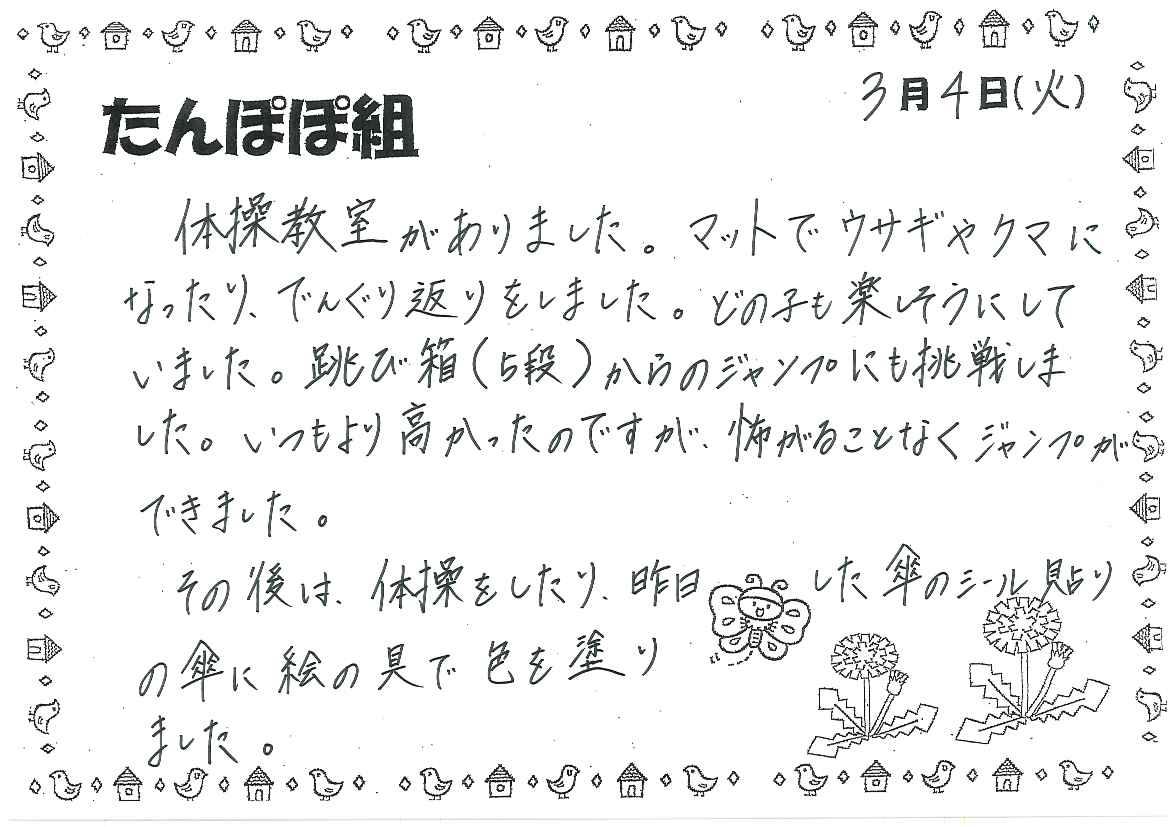 3月4日(火)
たんぽぽ組
体操教室がありました。マットでウサギやクマに
なったり、でんぐり返りをしました。どの子も楽しそうにして
いました。跳び箱(5段)からのジャンプにも挑戦しま
した。いつもより高かったのですが、怖がることなくジャンプが
できました。
その後は、体操をしたり、昨日した傘のシール貼り
の傘に絵の具で色を塗り
ました。